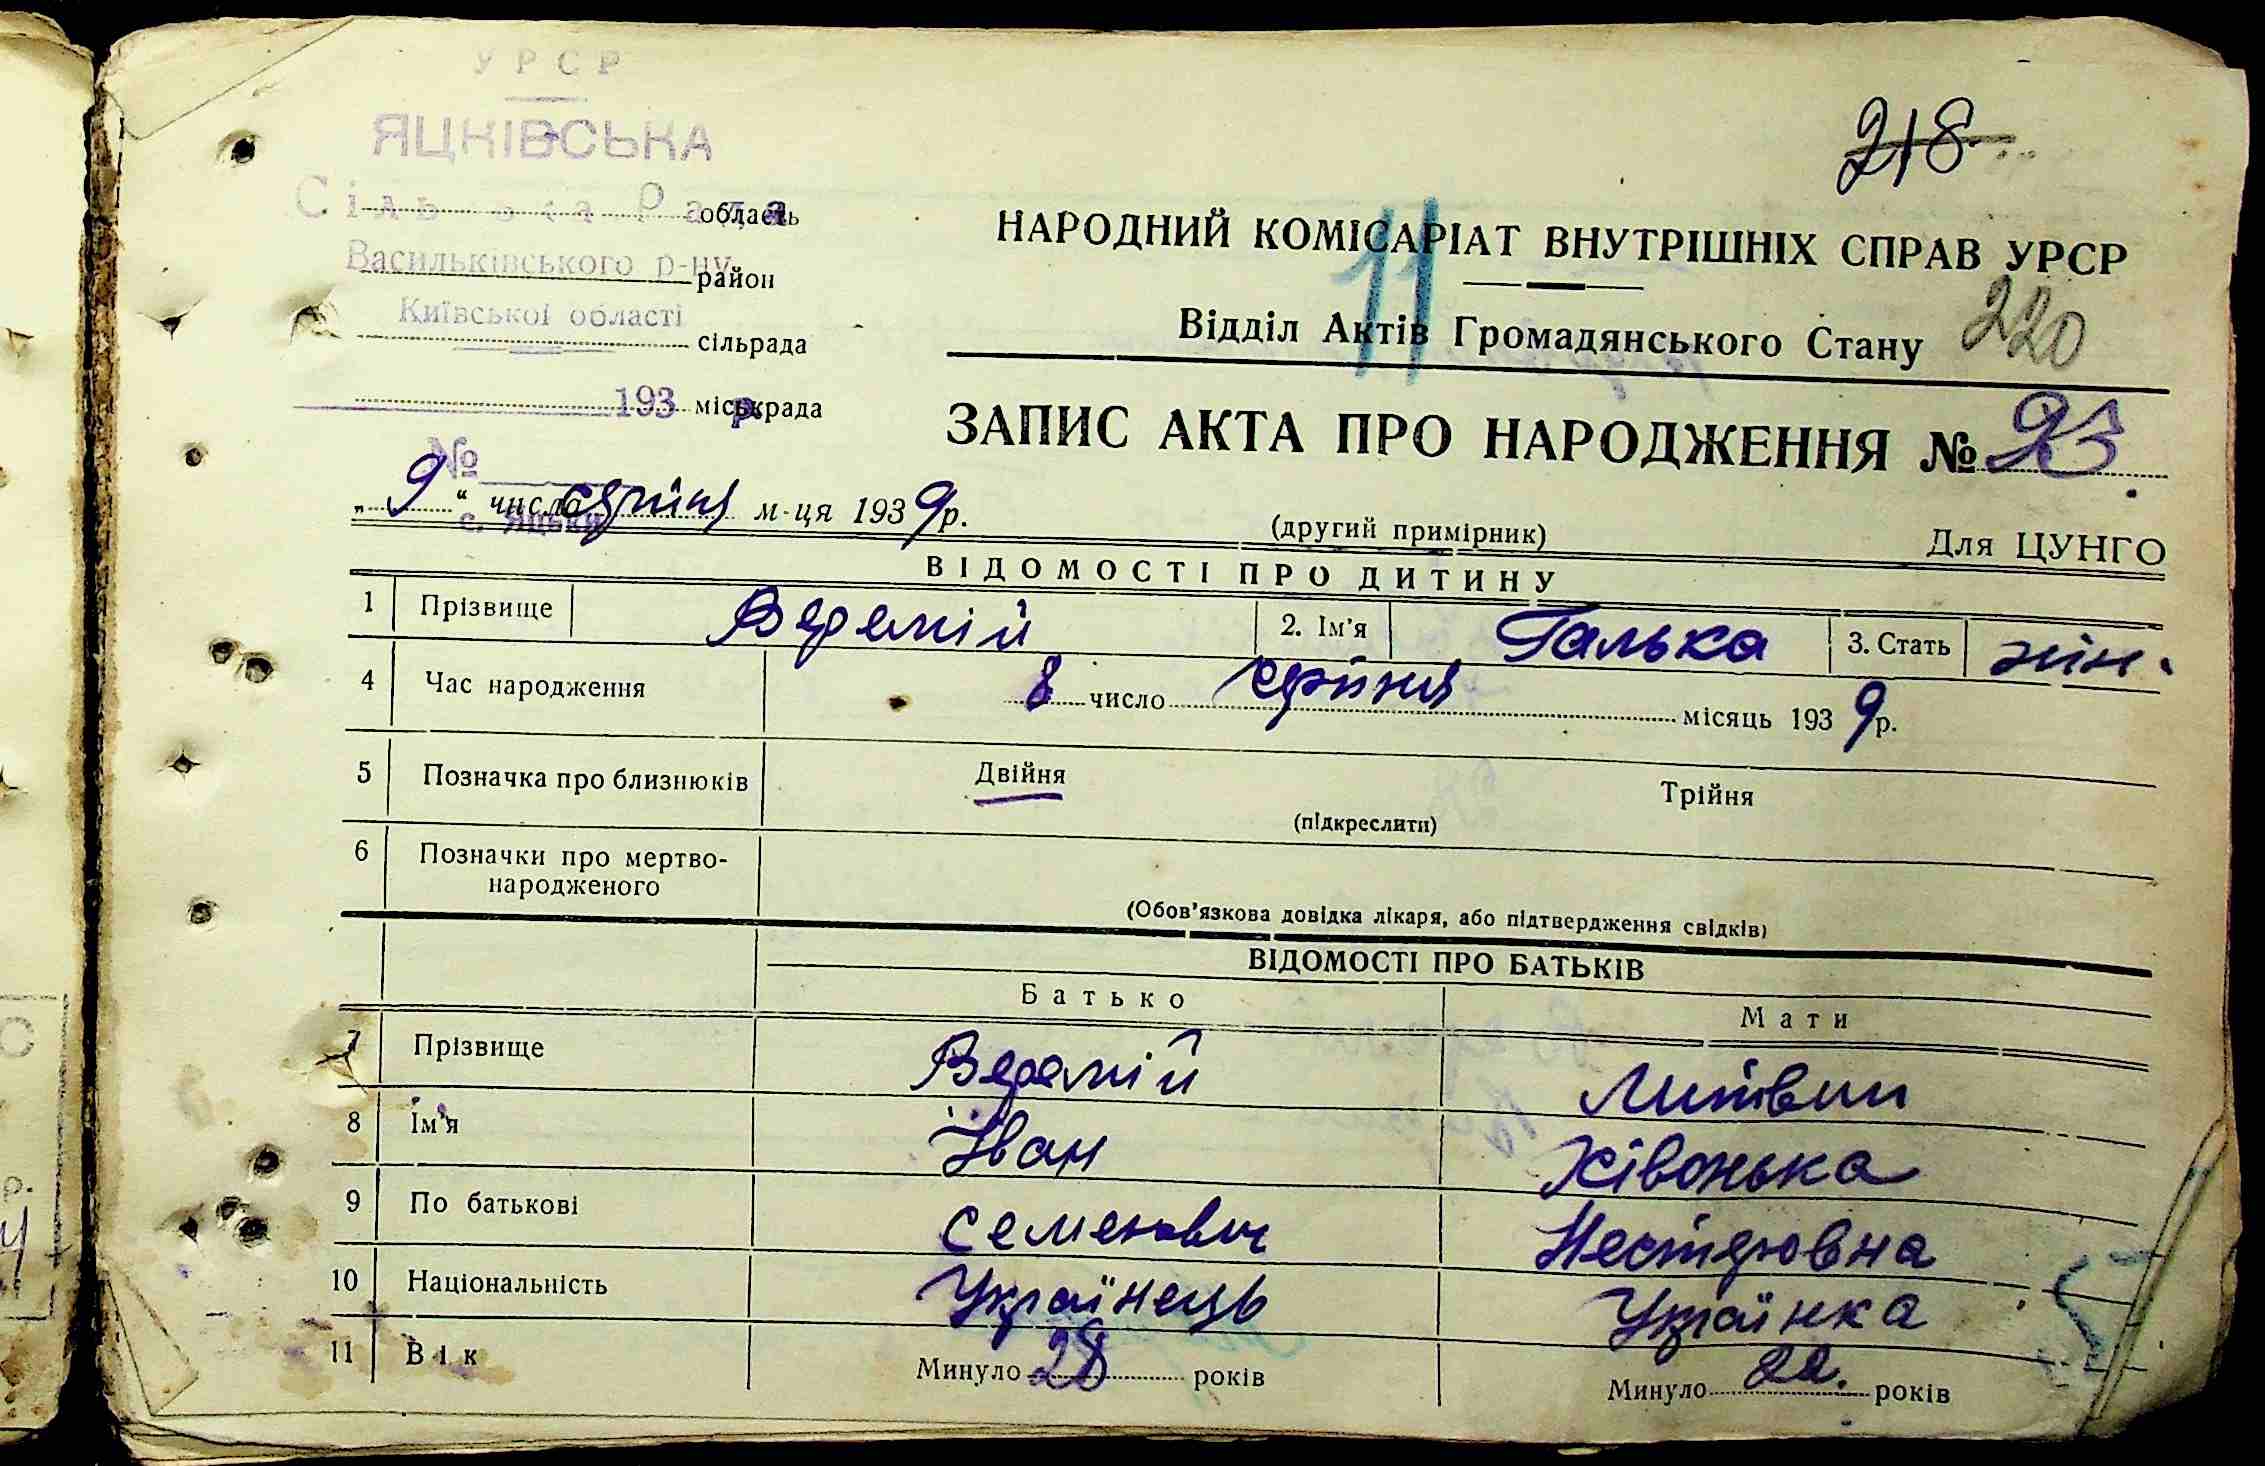 УРСР
ЯЦКІВСЬКА
Сільська Рада
область
Васильківського р-ну
район
Київської області
сільрада
193 р.
міськрада
№
с. Яцьки
218
НАРОДНИЙ КОМІСАРІАТ ВНУТРІШНІХ СПРАВ УРСР
11
Відділ Актів Громадянського Стану
220
ЗАПИС АКТА ПРО НАРОДЖЕННЯ № 93
„9“ числа серпня м-ця 1939 р.
(другий примірник)
Для ЦУНГО
ВІДОМОСТІ ПРО ДИТИНУ
1 Прізвище Веремій 2. Ім'я Галька 3. Стать жін.
4 Час народження 8 число серпня місяць 1939 р.
5 Позначка про близнюків Двійня Трійня
(підкреслити)
6 Позначки про мертво-
народженого
(Обов'язкова довідка лікаря, або підтвердження свідків)
ВІДОМОСТІ ПРО БАТЬКІВ
Батько Мати
7 Прізвище Веремій Литвин
8 Ім'я Іван Хівонька
9 По батькові Семенович Нестеровна
10 Національність Українець Українка
11 Вік Минуло 28 років Минуло 22. років